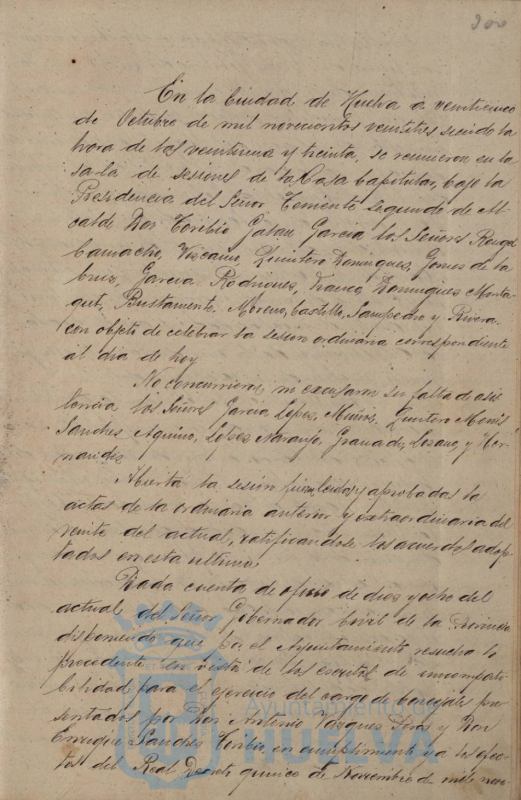 300
En la Ciudad de Huelva a veinticinco
de Octubre de mil novecientos veintitres siendo la
hora de las veintiuna y treinta, se reunieron en la
sala de sesiones de la Casa Capitular, bajo la
Presidencia del Señor Teniente segundo de Al
calde Don Toribio Galan Garcia los Señores
Camacho, Viscaino, Quintero Dominguez, Gomes de la
Cruz, Garcia Rodrines, Dominguez Monta
gut, Bustamente, Moreno, Castilla, Sampedro y Rivera
con objeto de celebrar la sesion ordinaria correspondiente
al dia de hoy
No concurrieron, ni excusaron su falta de asis
tencia los Señores Garcia Lópes, Muñiz, Quintero
Sanches Aquino, Lópes Naranjo, Granado, Lozano, y Her
nandes
Abierta la sesión fueron leidas y aprobadas la
actas de la ordinaria anterior y extraordinaria del
veinte del actual, ratificandose los acuerdos adop
tados en esta ultima
Dada cuenta de oficio de dies y ocho del
actual del Señor Gobernador Civil de la Provincia
disponiendo que por el Ayuntamiento resuelva lo
procedente en vista de los escritos de incompati
bilidad para el ejercicio del cargo de concejales pre
sentados por Don Antonio Vasques y Don
Enrique Sanches Toribio, en cumplimiento y a los efec
tos del Real Decreto quince de Noviembre de mil nove
Ayuntamiento de
HUELVA